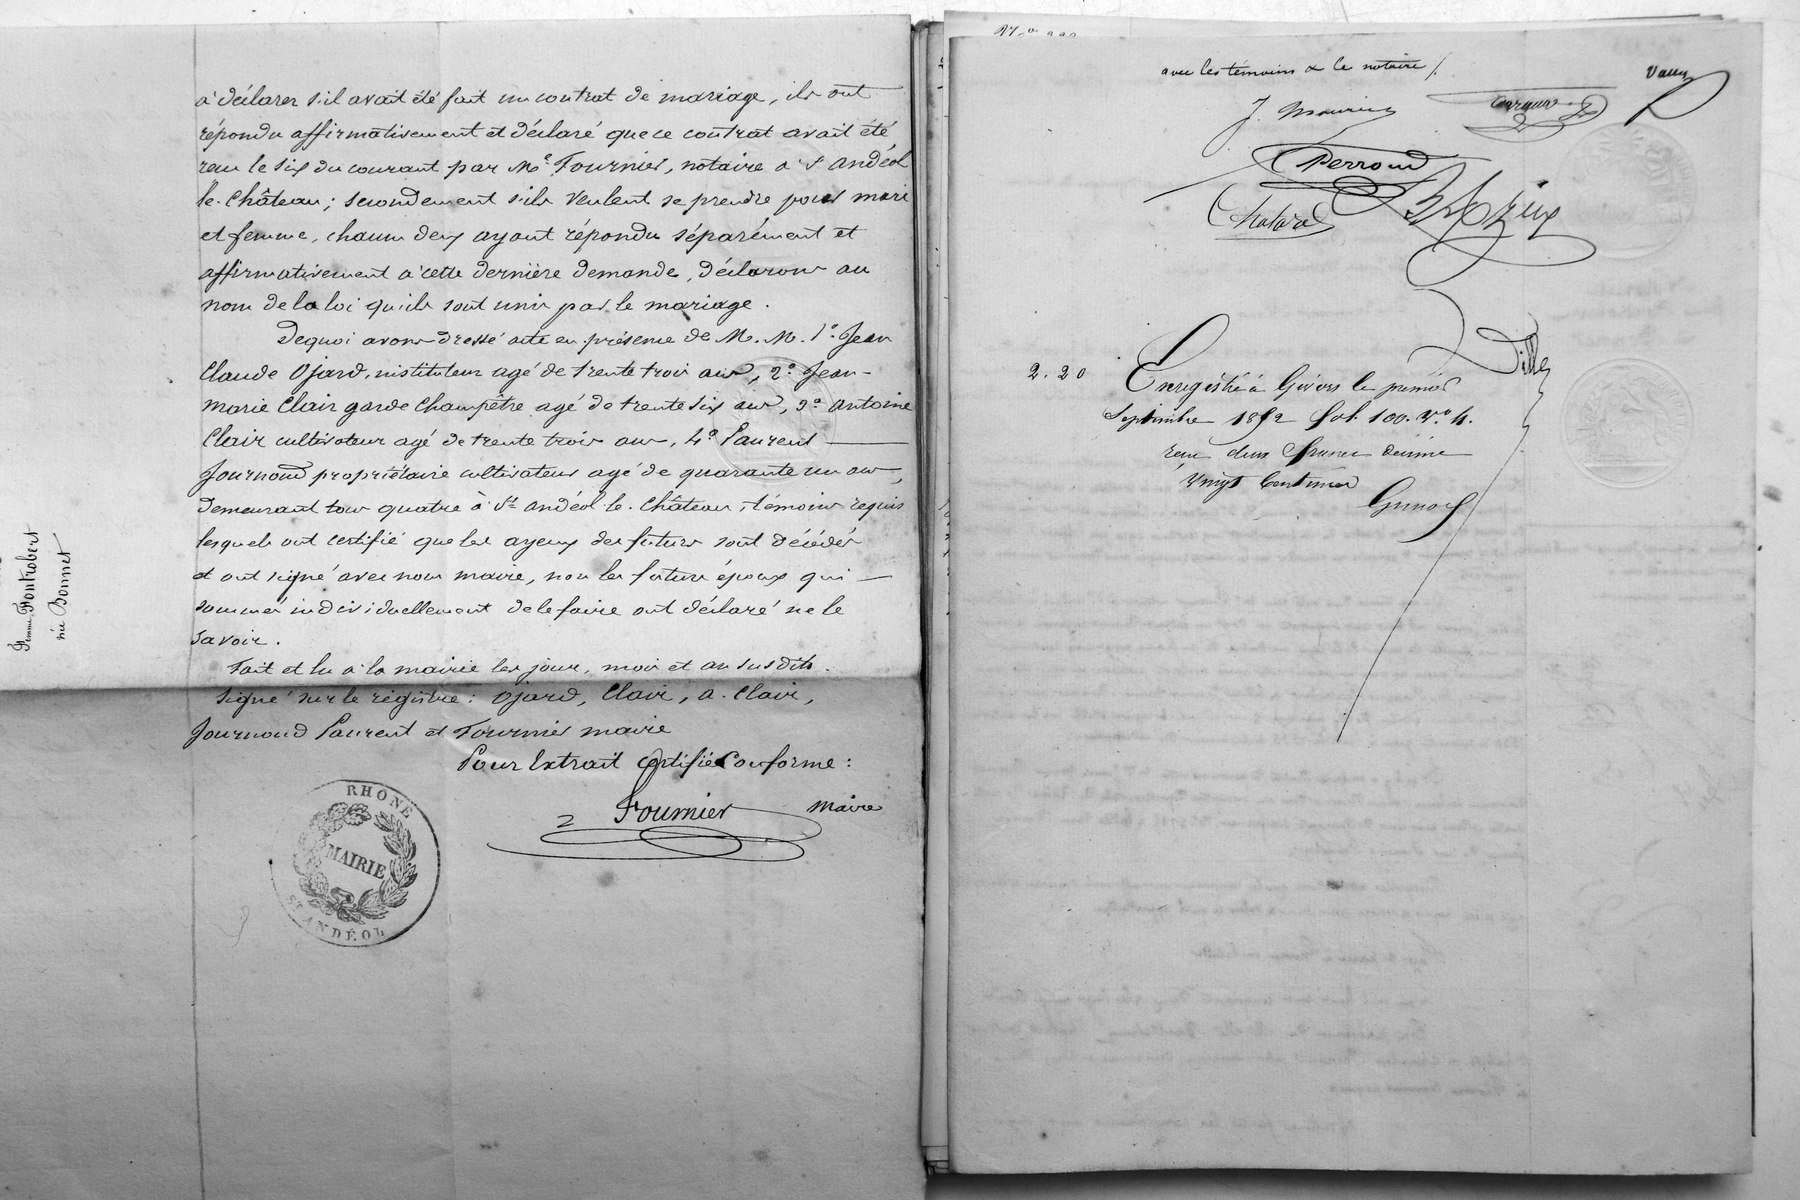 à déclarer s'il avait été fait un contrat de mariage, ils ont
répondu affirmativement et déclaré que ce contrat avait été
reçu le six du courant par Me Fournier, notaire à St Andéol
le-Château ; secondement s'ils veulent se prendre pour mari
et femme, chacun deux ayant répondu séparément et
affirmativement à cette dernière demande, déclarons au
nom de la loi qu'ils sont unis par le mariage.
De quoi avons dressé acte en présence de M. M. 1° Jean
Claude Ojard, instituteur agé de trente trois ans, 2° Jean-
marie Clair garde champêtre agé de trente six ans, 3° antoine
Clair cultivateur agé de trente trois ans, 4° Laurent
Journoud propriétaire cultivateur agé de quarante un ans,
demeurant tous quatre à St andéol-le-Château, témoins requis
lesquels ont certifié que les ayeux des futurs sont décédés
et ont signé avec nous maire, non les futurs époux qui
sommés individuellement de le faire ont déclaré ne le
savoir.
Fait et lu à la mairie les jour, mois et an susdits.
Signé sur le registre : Ojard, Clair, a. Clair,
Journoud Laurent et Fournier maire
Pour Extrait certifié conforme :
Fournier maire
RHÔNE
MAIRIE
ST ANDÉOL
Femme Fontrobert
née Bonnet
avec les témoins & le notaire /.
Perroud
2.20
Enregistré à Givors le premier
Septembre 1892 fol. 100. Vo
reçu deux francs décime
vingt centimes